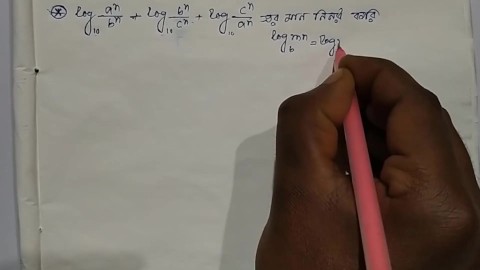 ⊛ log₁₀ aⁿ/bⁿ + log₁₀ bⁿ/cⁿ + log₁₀ cⁿ/aⁿ এর মান নির্ণয় করি
log_b mn = log